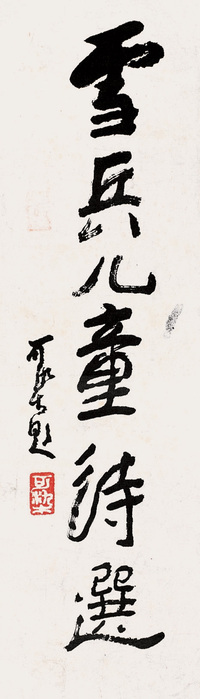 雪兵儿童诗選
可染题
可染